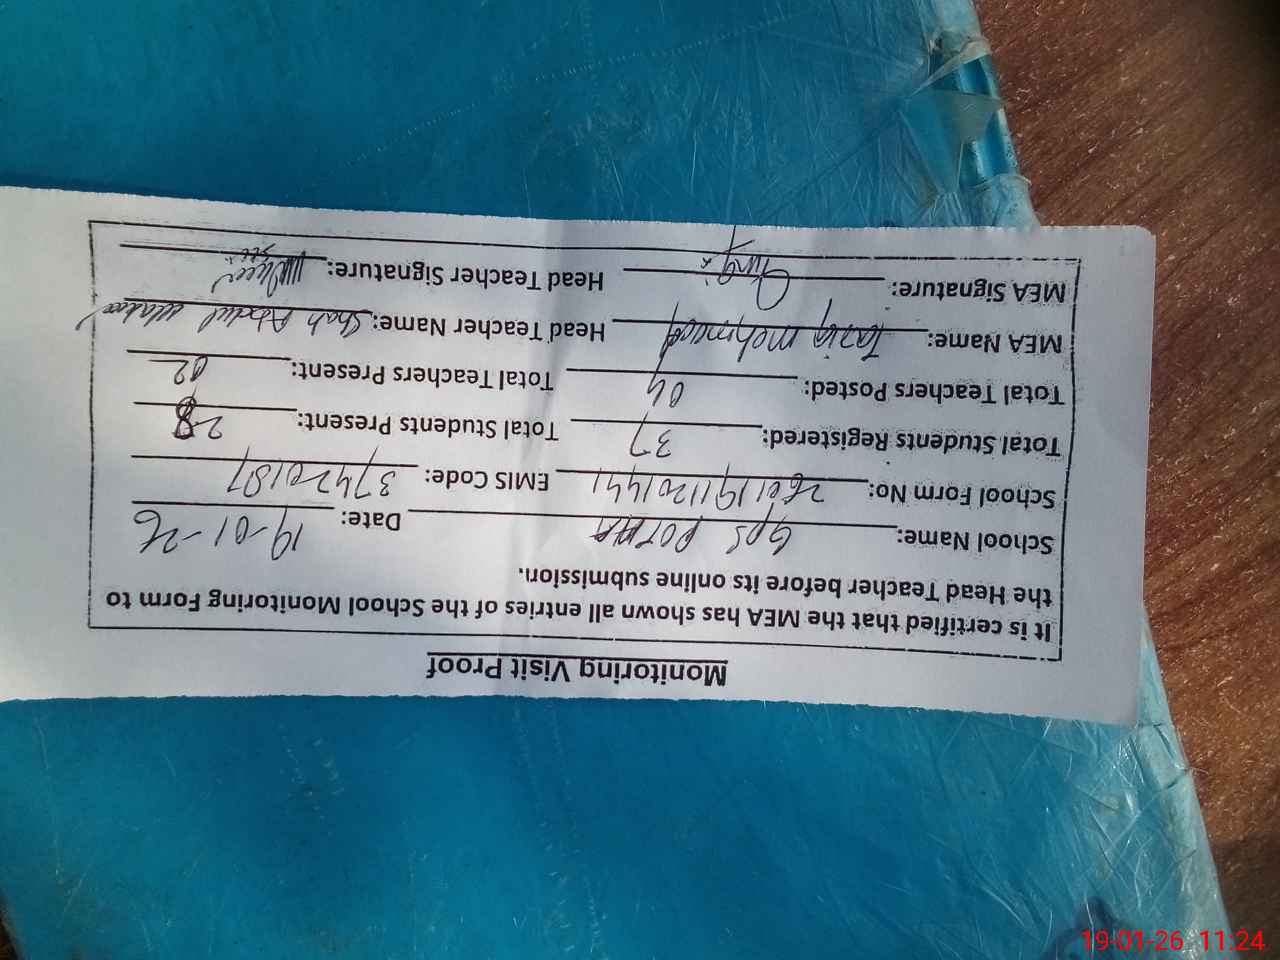 Monitoring Visit Proof
It is certified that the MEA has shown all entries of the School Monitoring Form to
the Head Teacher before its online submission.
School Name: GPS POTHA Date: 19-01-26
School Form No: 26011911201441 EMIS Code: 37420187
Total Students Registered: 37 Total Students Present: 28
Total Teachers Posted: 04 Total Teachers Present: 02
MEA Name: Tazig mehmood Head Teacher Name: Shah Abdul
MEA Signature: Head Teacher Signature:
19-01-26 11:24